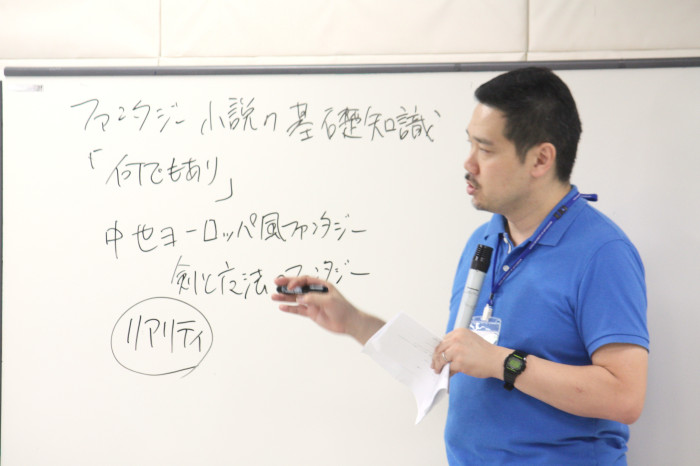 ファンタジー小説の基礎知識
「何でもあり」
中世ヨーロッパ風ファンタジー
剣と魔法のファンタジー
リアリティ